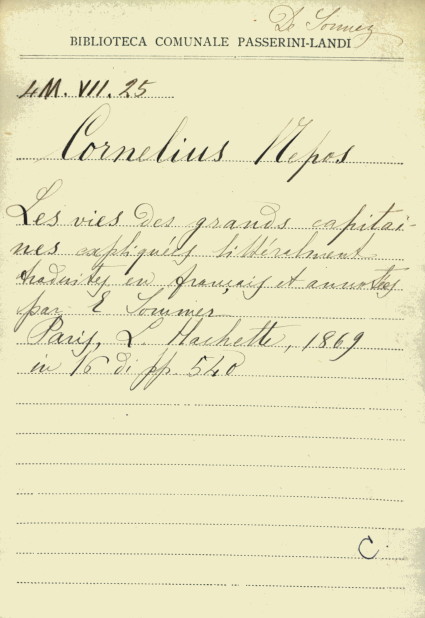 De Sonnaz
BIBLIOTECA COMUNALE PASSERINI-LANDI
4M. VII. 25
Cornelius Nepos
Les vies des grands capitai-
nes expliquées littéralment
traduites en français et annotés
par E Sommer
Paris, L. Hachette, 1869
in 16 di pp. 540
C